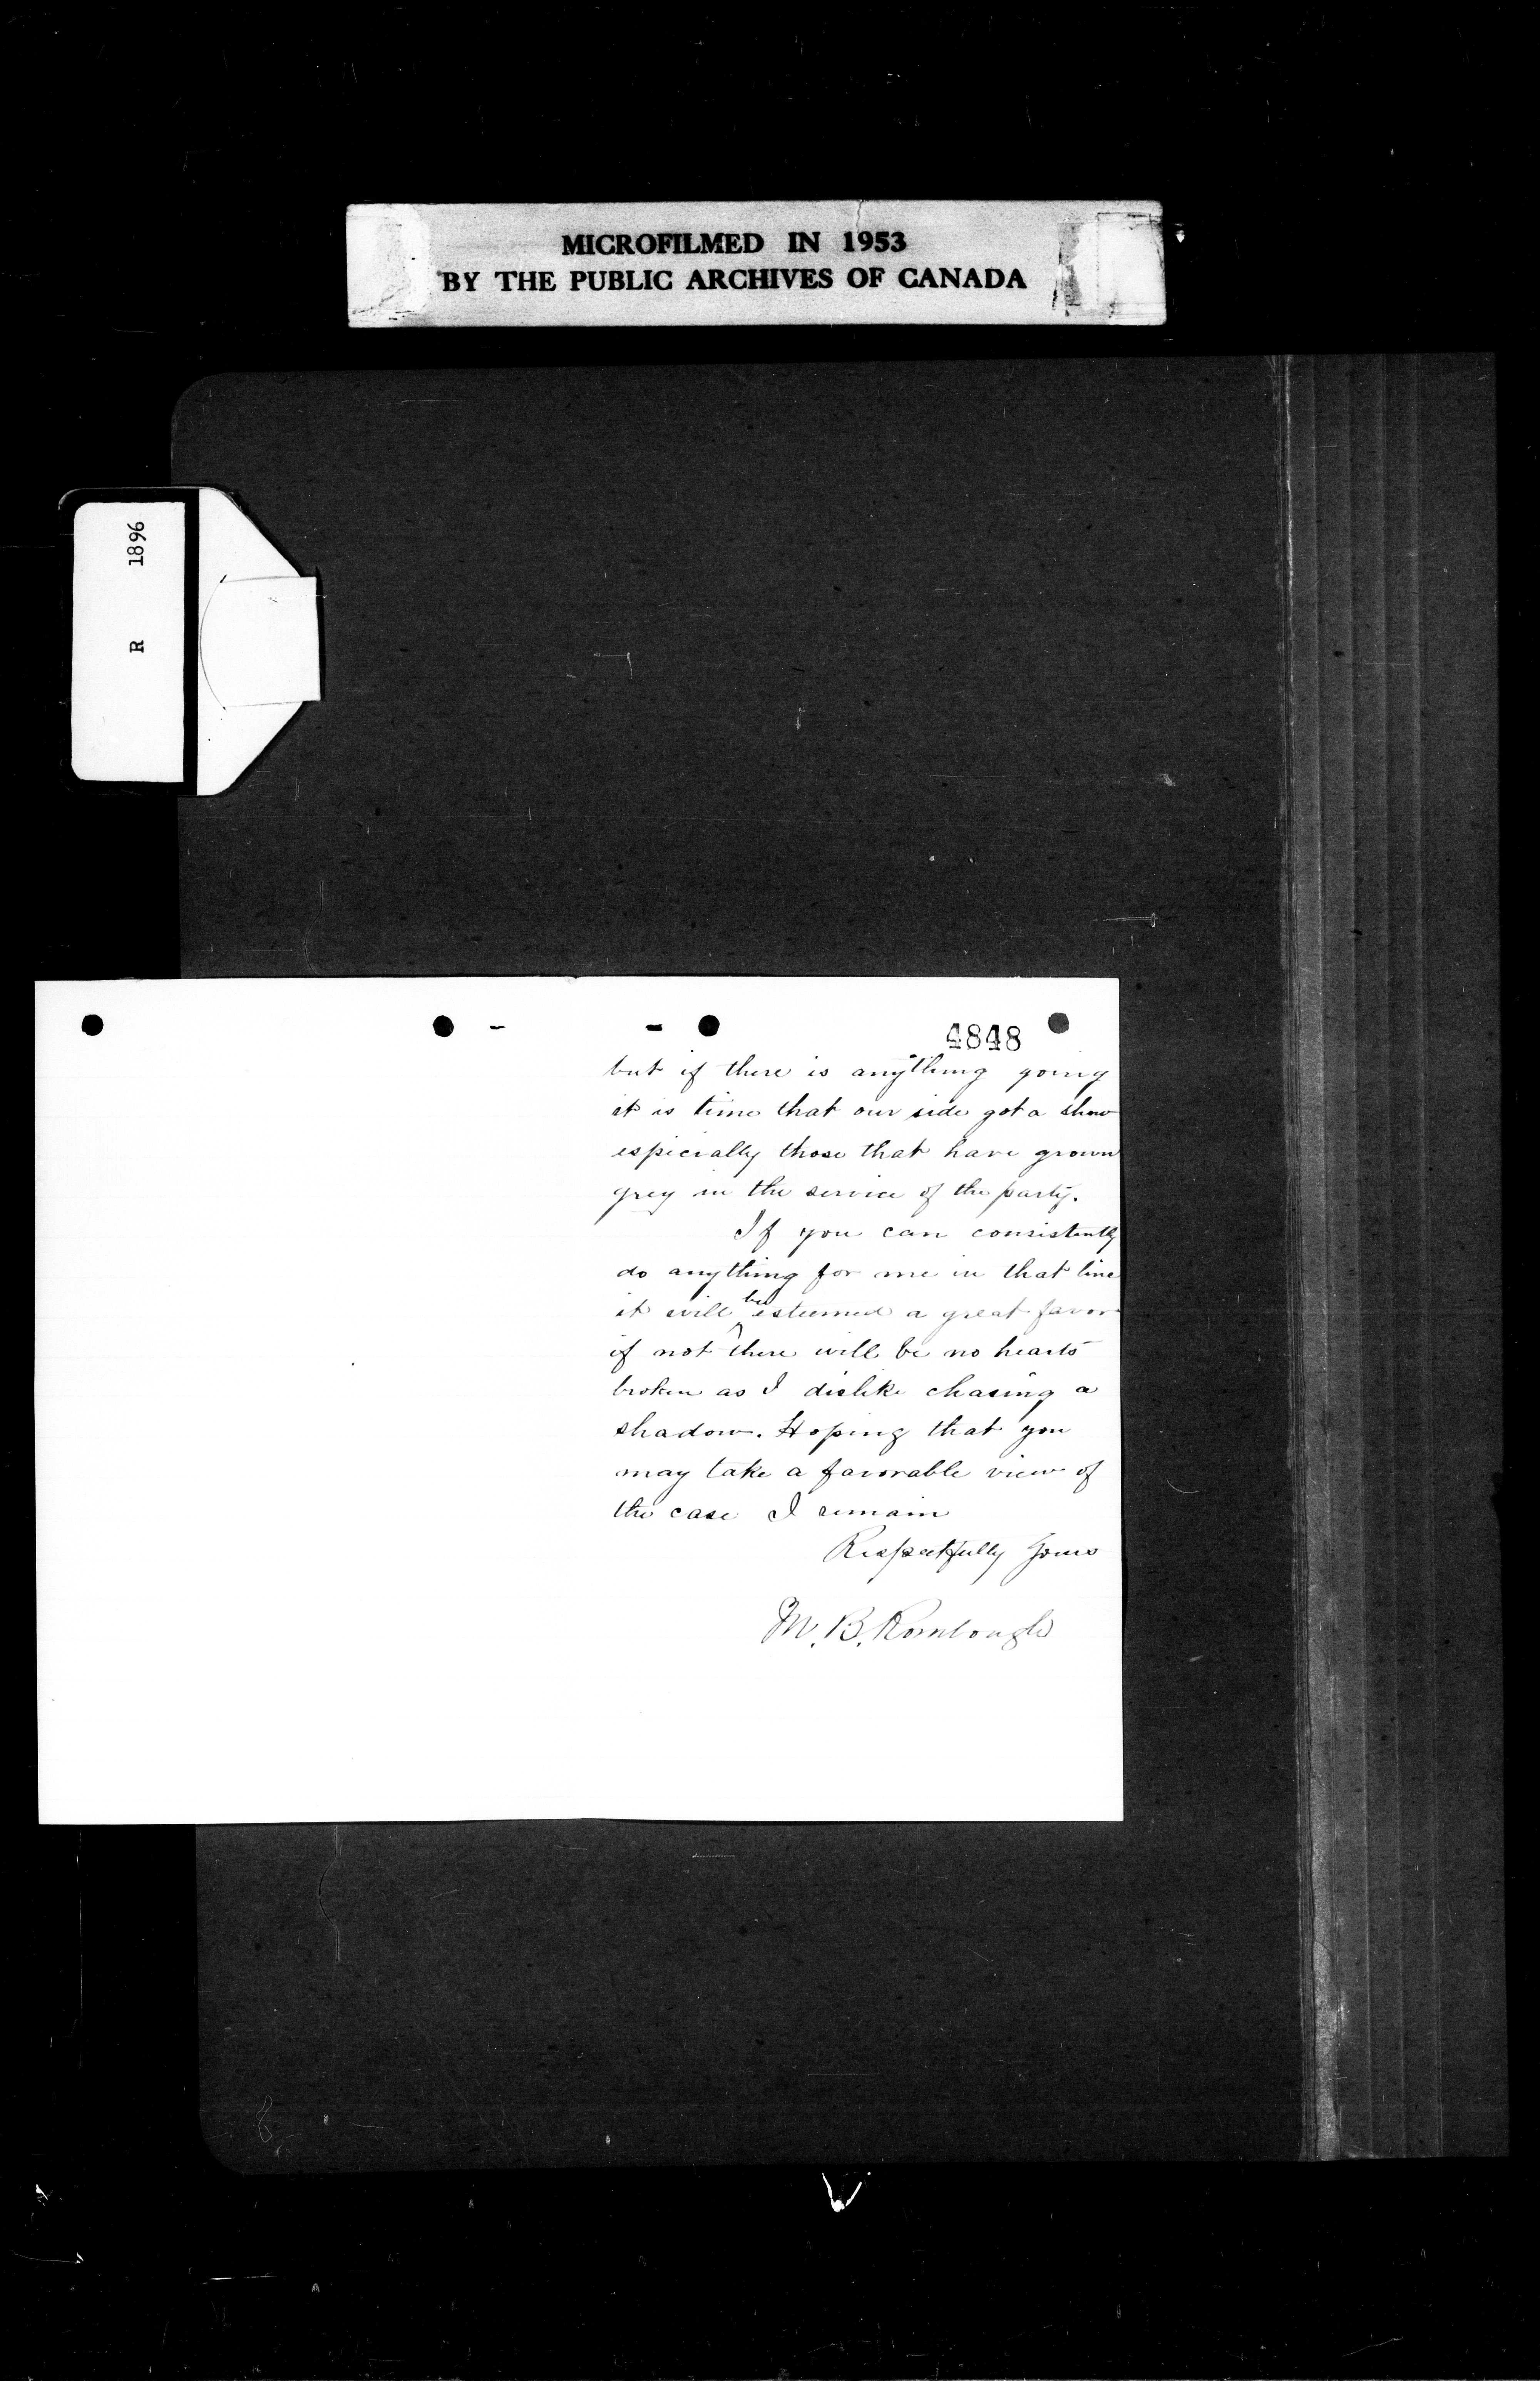 MICROFILMED IN 1953
BY THE PUBLIC ARCHIVES OF CANADA
R 1896
4848
but if there is anything going
it is time that our side got a show
especially those that have grown
grey in the service of the party.
If you can consistently
do anything for me in that line
it will be esteemed a great favor
if not there will be no hearts
broken as I dislike chasing a
shadow. Hoping that you
may take a favorable view of
the case I remain
Respectfully Yours
M. B. Rombough